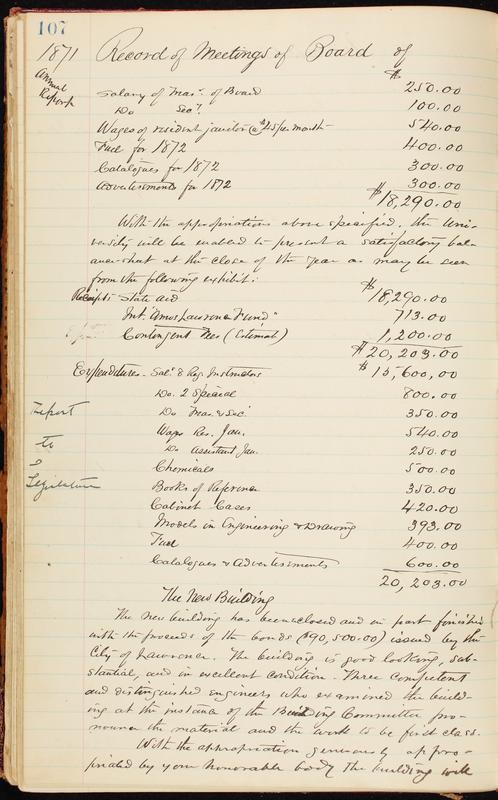 107
1871 Record of Meetings of Board of
Annual Report
$
Salary of Treas. of Board 250.00
Do Sec'y. 100.00
Wages of resident janitor @ $45 per month 540.00
Fuel for 1872 400.00
Catalogues for 1872 300.00
Advertisements for 1872 300.00
$18,290.00
With the appropriations above specified, the Uni-
versity will be enabled to present a satisfactory bal-
ance sheet at the close of the year as may be seen
from the following exhibit:
Receipts State aid $18,290.00
Int. "Amos Lawrence Fund" 713.00
Contingent Fees (Estimate) 1,200.00
$20,203.00
Expenditures. Sal. 8 Reg. Instructors $15,600.00
Do. 2 Special 800.00
Do Treas. & Sec. 350.00
Wages Res. Jan. 540.00
Do Assistant Jan. 250.00
Chemicals 500.00
Books of Reference 350.00
Cabinet Cases 420.00
Models in Engineering & Drawing 393.00
Fuel 400.00
Catalogues & Advertisements 600.00
20,203.00
Report
to
Legislature
The New Building
The new building has been enclosed and in part finished
with the proceeds of the bonds ($90,500.00) issued by the
City of Lawrence. The building is good looking, sub-
stantial, and in excellent condition. Three competent
and distinguished engineers who examined the build-
ing at the instance of the Building Committee pro-
nounce the material and the work to be first class.
With the appropriation generously appro-
priated by your honorable body the building will